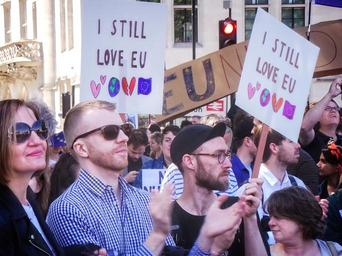 I STILL
LOVE EU
I STILL
LOVE EU
EUN